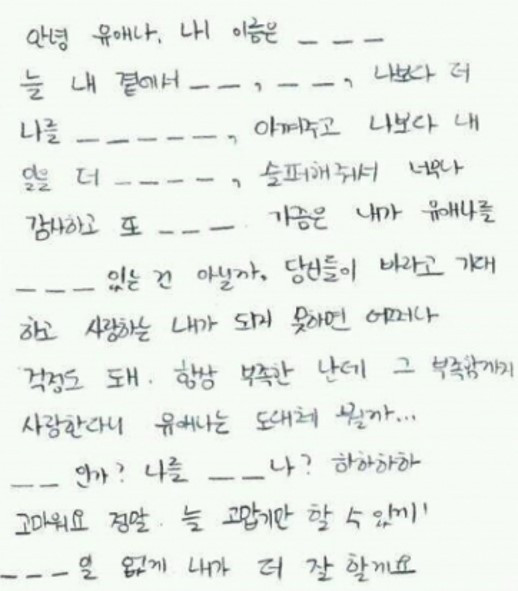 안녕 유애나, 내 이름은 _ _ _
늘 내 곁에서 _ _, _ _, 나보다 더
나를 _ _ _ _ _, 아껴주고 나보다 내
일을 더 _ _ _ _, 슬퍼해줘서 너무나
감사하고 또 _ _ _. 가끔은 내가 유애나를
_ _ _ 있는 건 아닐까. 당신들이 바라고 기대
하고 사랑하는 내가 되지 못하면 어쩌나
걱정도 돼. 항상 부족한 난데 그 부족함까지
사랑한다니 유애나는 도대체 뭘까...
_ _ 인가? 나를 _ _ 나? 하하하하
고마워요 정말. 늘 고맙기만 할 수 있게!
_ _ _ 일 없게 내가 더 잘 할게요